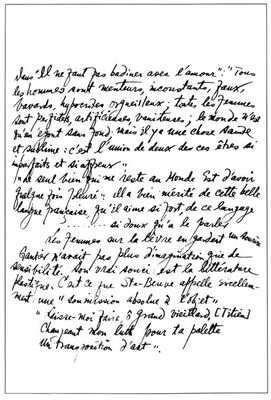 Dans "Il ne faut pas badiner avec l'amour": "Tous
les hommes sont menteurs, inconstants, faux,
bavards, hypocrites orgueilleux; toutes les femmes
sont perfides, artificieuses, vaniteuses; le monde n'est
qu'un égout sans fond, mais il y a une chose sainte
et sublime: c'est l'union de deux de ces êtres si
imparfaits et si affreux"
"Le seul bien qui me reste au Monde Est d'avoir
quelque fois pleuré". il a bien mérité de cette belle
langue française qu'il aime si fort, de ce langage
........ si doux qu'à le parler
les femmes sur la lèvre en gardent un sourire
Gautier n'avait pas plus d'imagination que de
sensibilité. Son vrai souci est la littérature
plastique. C'est ce que Ste-Beuve appelle excellem-
ment une "soumission absolue à l'objet"
"Laisse-moi faire, ô grand vieillard, [Titien]
Changeant mon luth pour ta palette
Une transposition d'art".